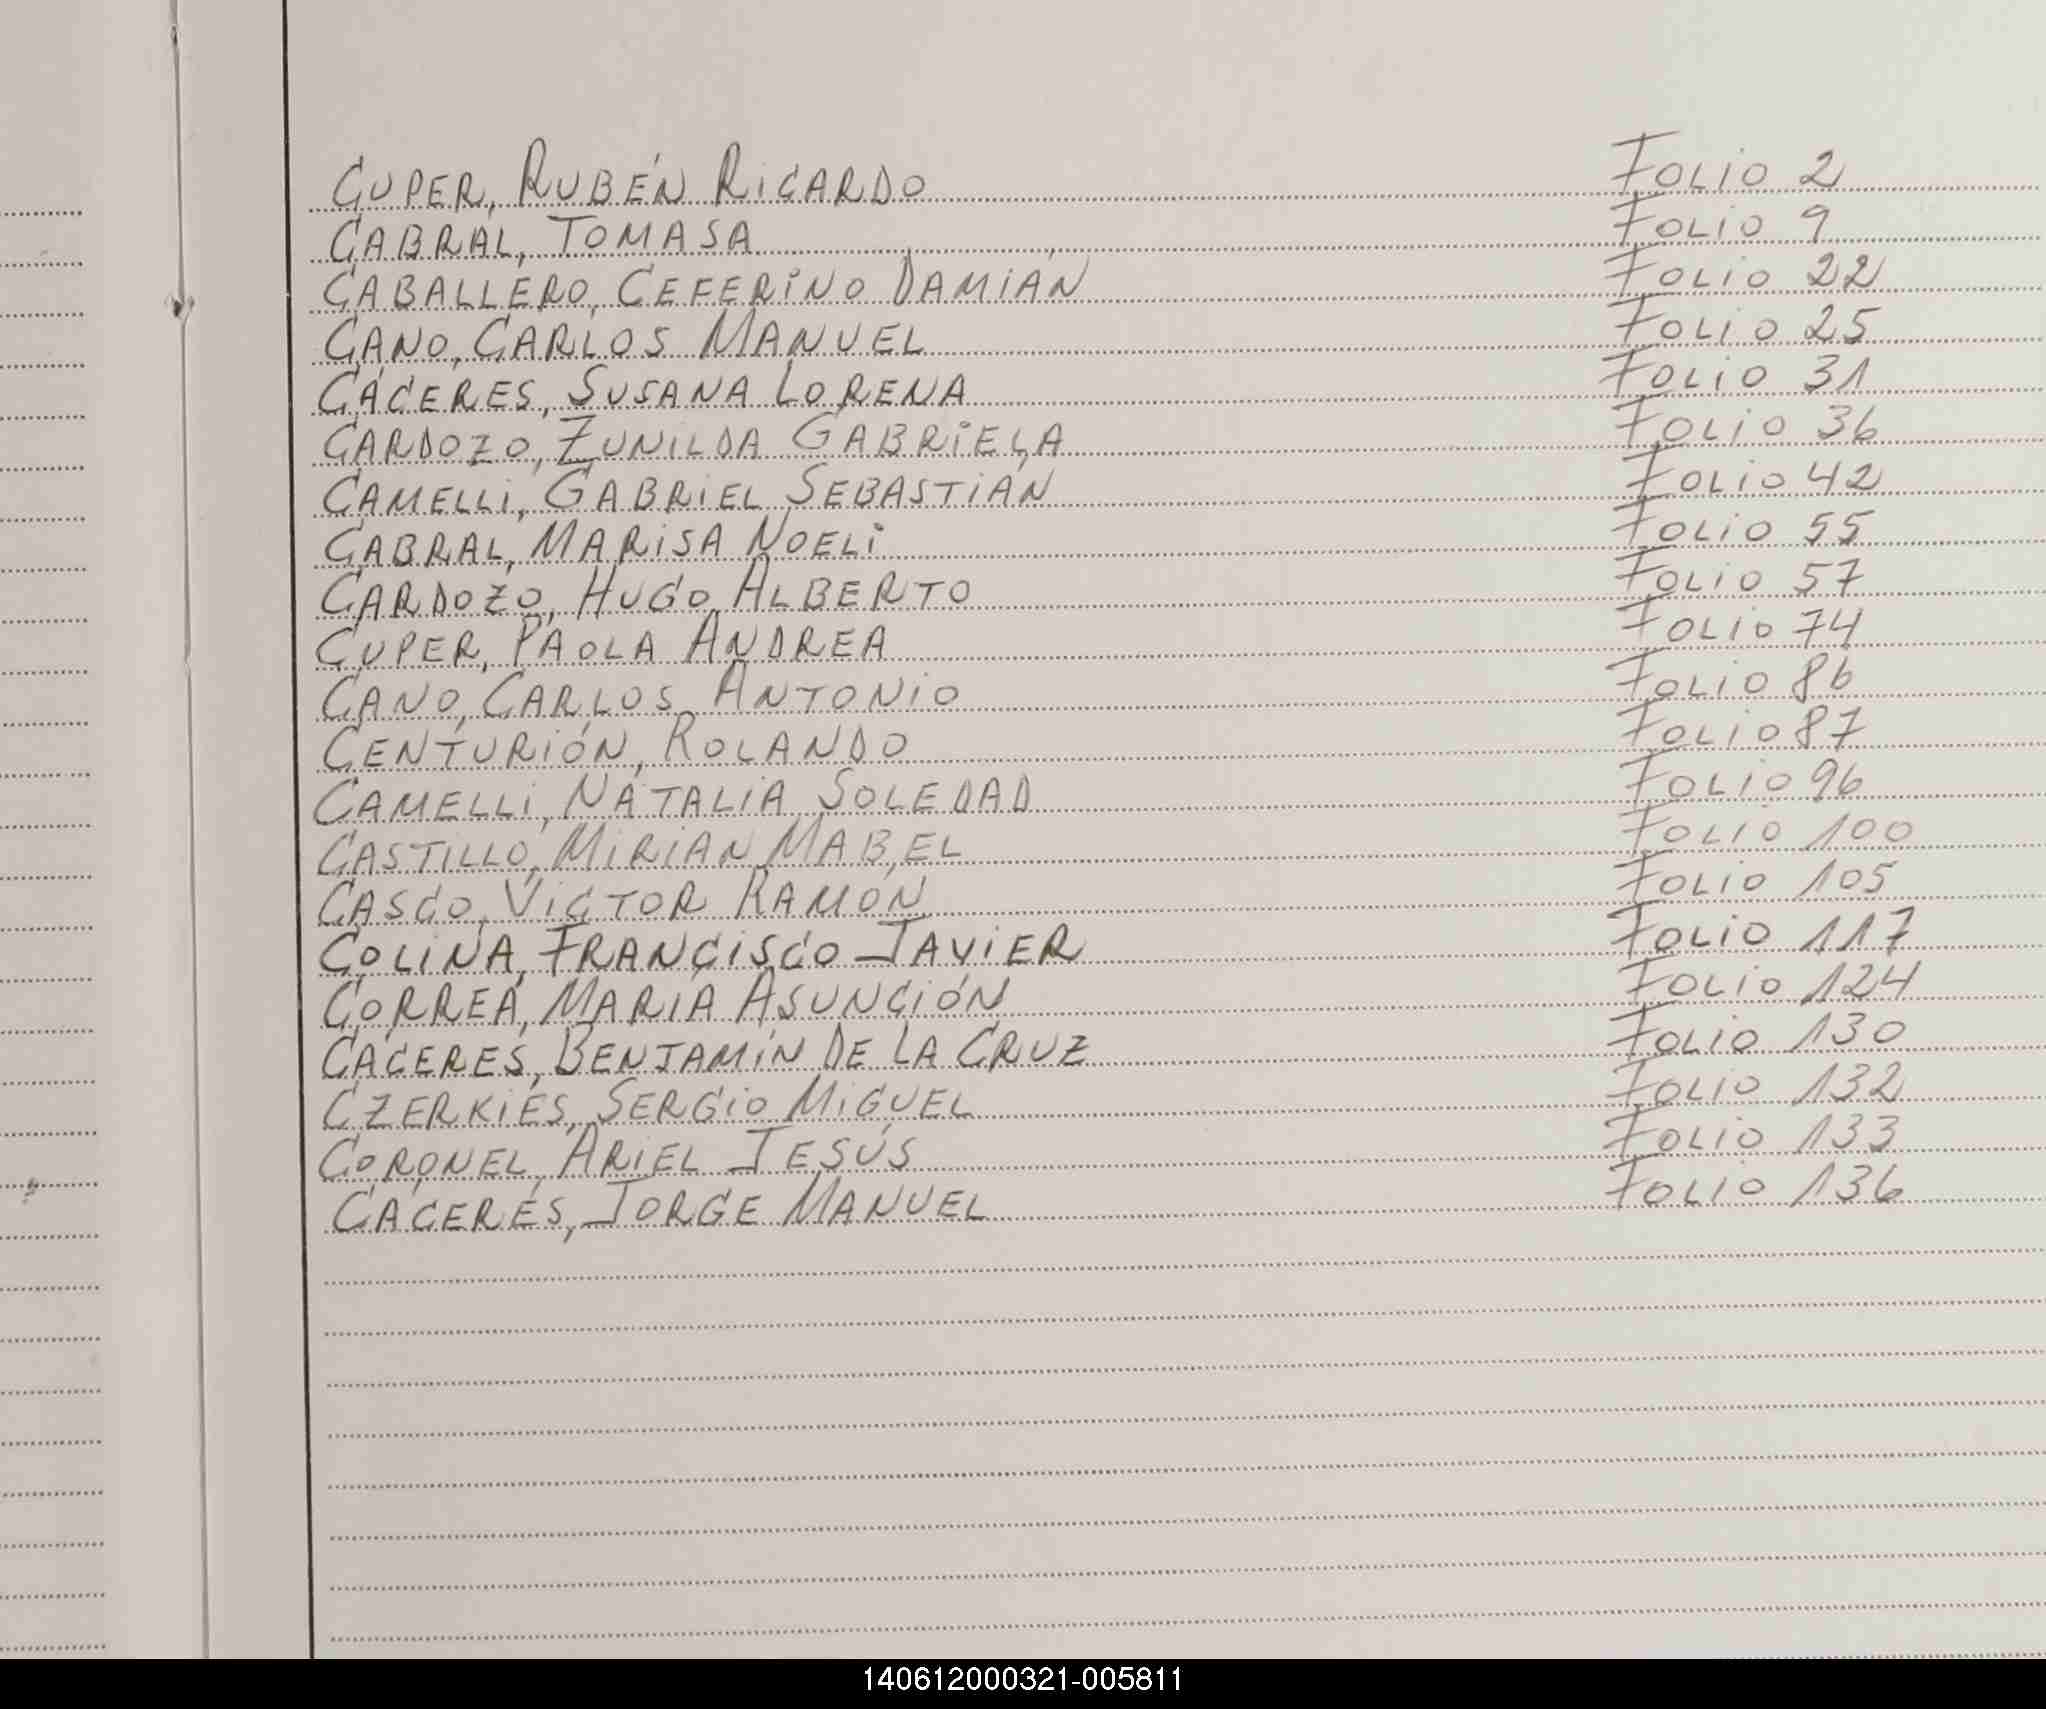 CUPER, RUBÉN RICARDO Folio 2
CABRAL, TOMASA Folio 9
CABALLERO, CEFERINO DAMIÁN Folio 22
CANO, CARLOS MANUEL Folio 25
CÁCERES, SUSANA LORENA Folio 31
CARDOZO, ZUNILDA GABRIELA Folio 36
CAMELLI, GABRIEL SEBASTIÁN Folio 42
CABRAL, MARISA NOELI Folio 55
CARDOZO, HUGO ALBERTO Folio 57
CUPER, PAOLA ANDREA Folio 74
CANO, CARLOS ANTONIO Folio 86
CENTURIÓN, ROLANDO Folio 87
CAMELLI, NATALIA SOLEDAD Folio 96
CASTILLO, MIRIAN MABEL Folio 100
CASCO, VICTOR RAMÓN Folio 105
COLINA, FRANCISCO JAVIER Folio 117
CORREA, MARIA ASUNCIÓN Folio 124
CACERES, BENJAMÍN DE LA CRUZ Folio 130
CZERKIES, SERGIO MIGUEL Folio 132
CORONEL, ARIEL JESÚS Folio 133
CACERES, JORGE MANUEL Folio 136
140612000321-005811